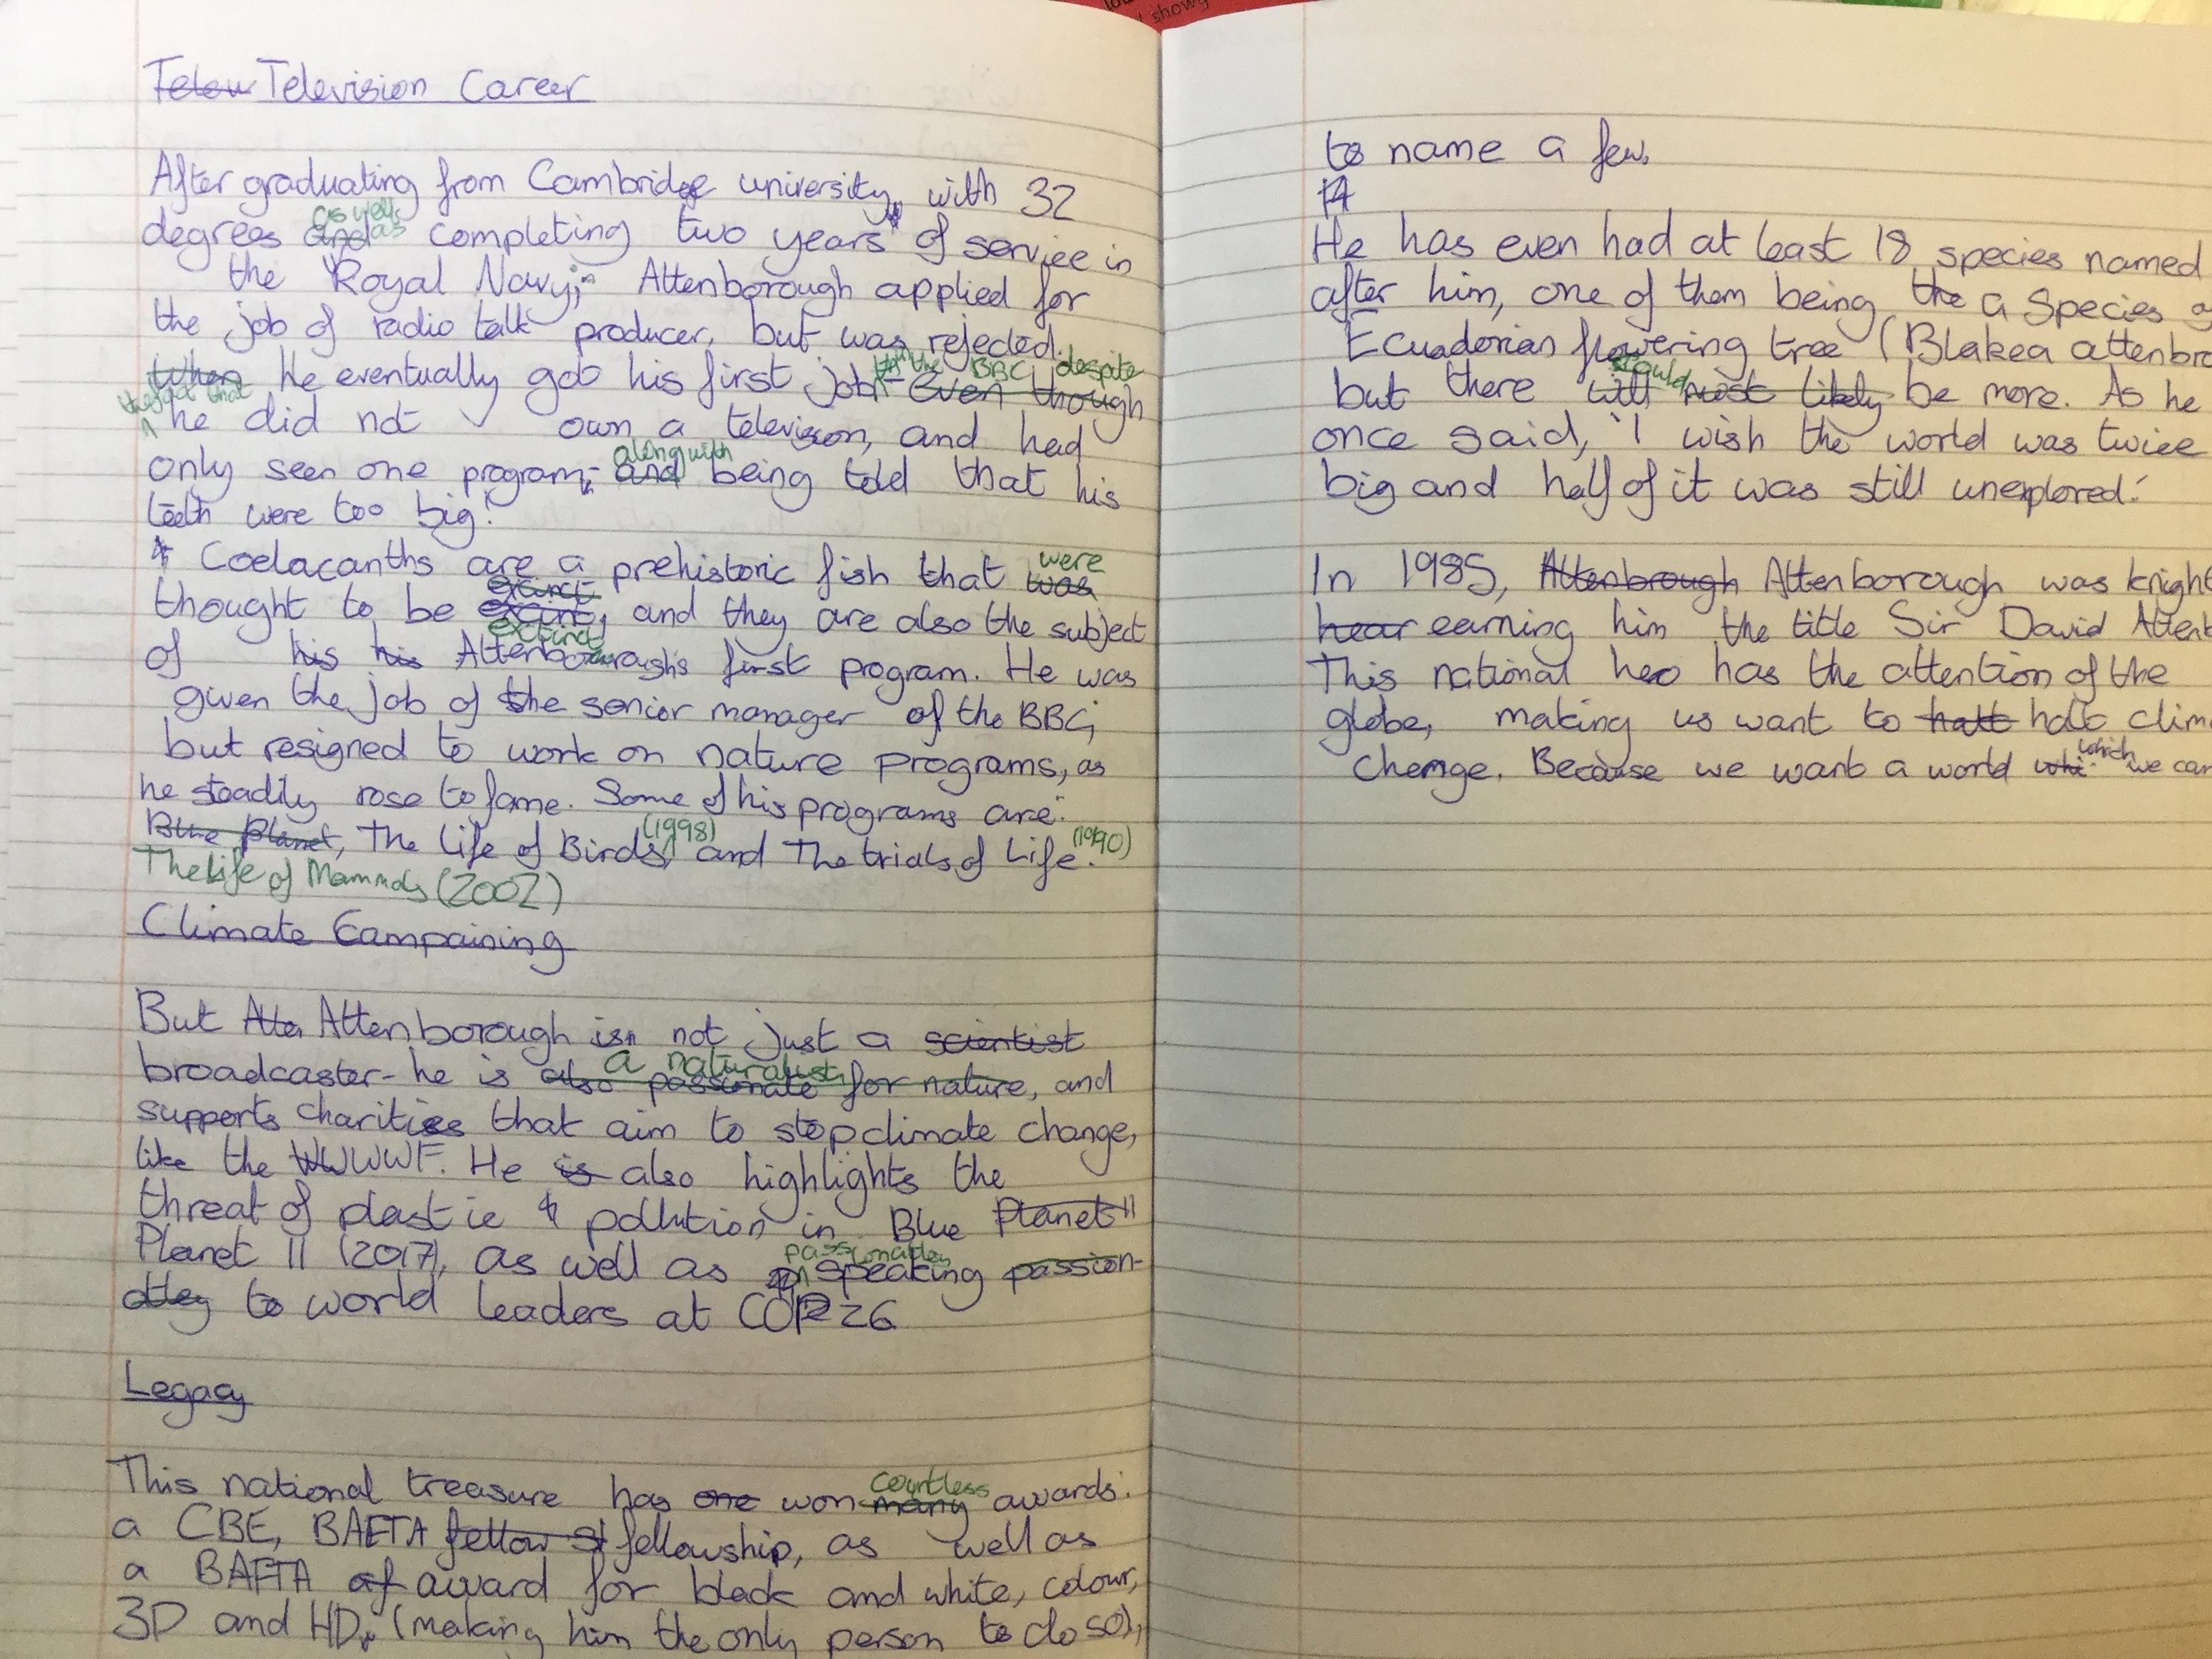 Television Career
After graduating from Cambridge university, with 32
degrees as well as completing two years of service in
the Royal Navy, Attenborough applied for
the job of radio talk producer, but was rejected.
He eventually got his first job in the BBC despite
the fact that he did not own a television, and had
only seen one program, along with being told that his
teeth were too big!
Coelacanths are a prehistoric fish that were
thought to be extinct, and they are also the subject
of Attenborough's first program. He was
given the job of the senior manager of the BBC,
but resigned to work on nature programs, as
he steadily rose to fame. Some of his programs are:
The Life of Birds, (1998) and The trials of Life. (1990)
The Life of Mammals (2002)
Climate Campaining
But Attenborough is not just a
broadcaster- he is a naturalist, and
supports charities that aim to stop climate change,
like the WWF. He also highlights the
threat of plastic pollution in Blue
Planet II (2017), as well as passionatley speaking
to world leaders at COP26
Legacy
This national treasure has won countless awards:
a CBE, BAFTA fellowship, as well as
a BAFTA award for black and white, colour,
3D and HD, (making him the only person to do so),
to name a few.
He has even had at least 18 species named
after him, one of them being a species
Ecuadorian flowering tree (Blakea attenbro
but there should be more. As he
once said, 'I wish the world was twice
big and half of it was still unexplored.'
In 1985, Attenborough was knight
earning him the title Sir David Attenb
This national hero has the attention of the
globe, making us want to halt clim
change. Because we want a world which we can